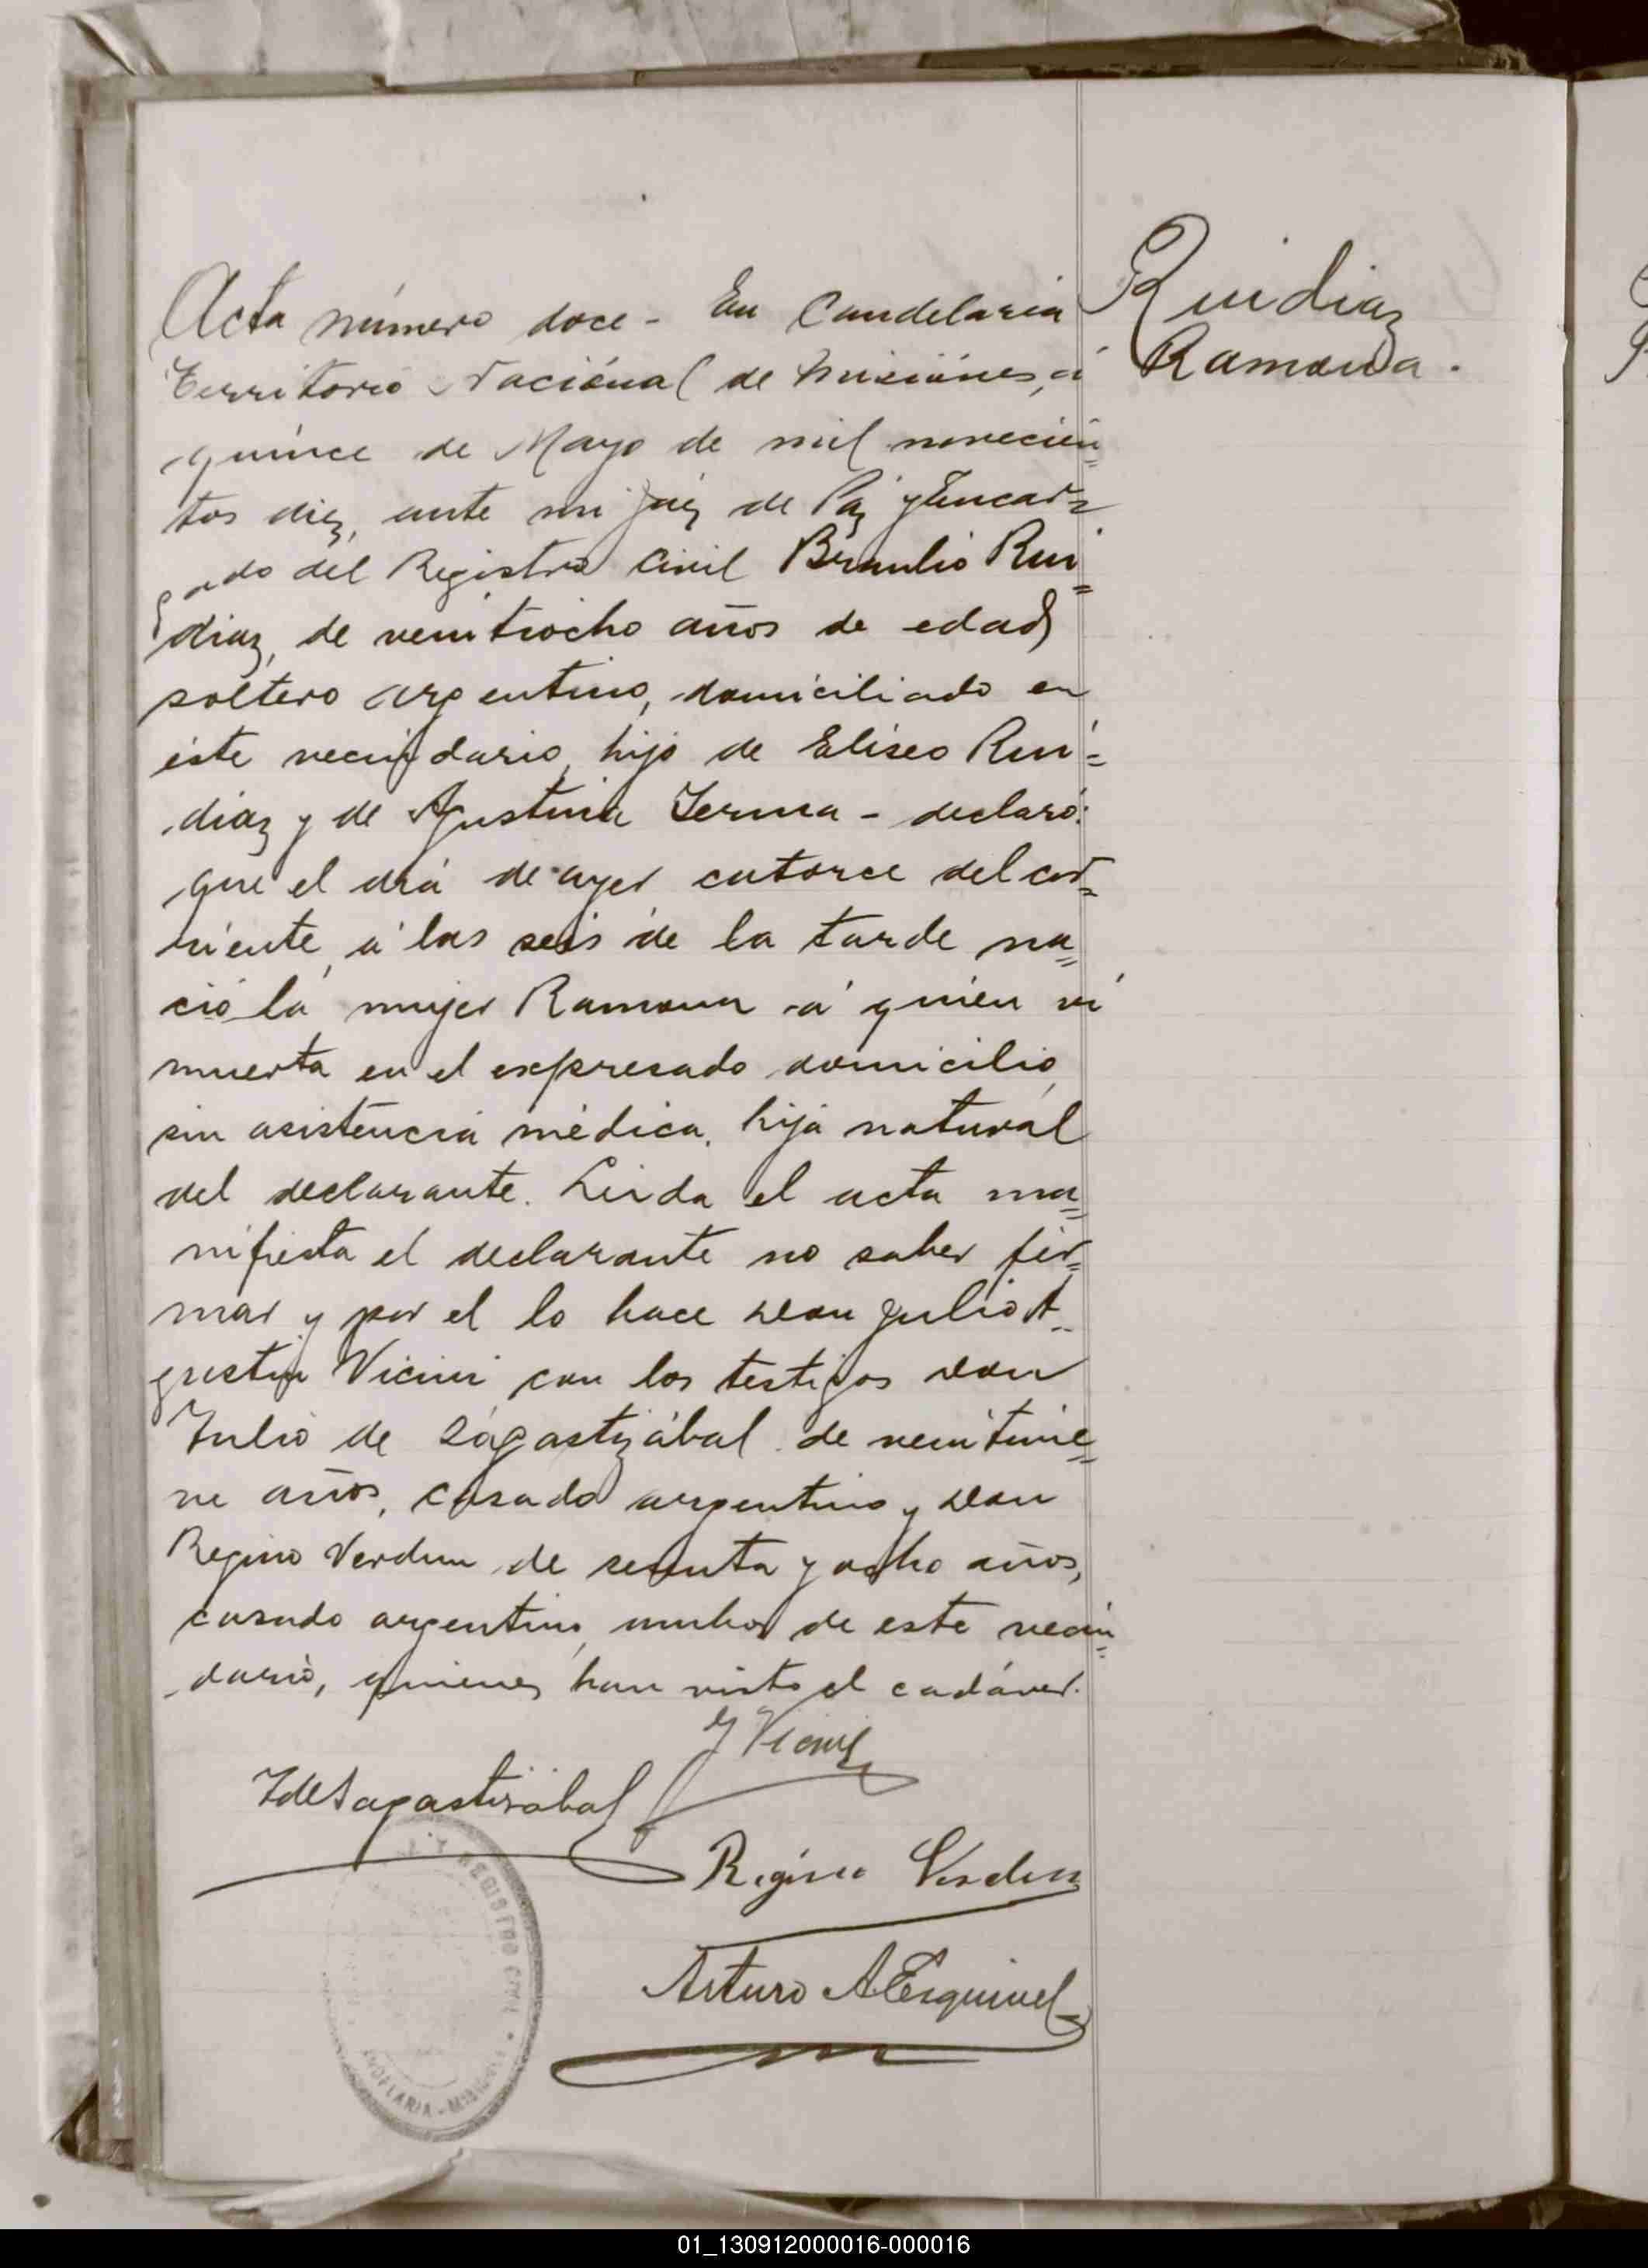 Ruidiaz
Ramona.
Acta número doce - En Candelaria
Territorio Nacional de Misiones, á
quince de Mayo de mil novecien=
tos diez, ante mi Juez de Paz y Encar=
gado del Registro Civil Braulio Rui=
diaz, de veintiocho años de edad
soltero argentino, domiciliado en
éste vecindario, hijo de Eliseo Rui=
diaz y de Agustina Lerma - declaró:
que el dia de ayer catorce del cor=
riente, á las seis de la tarde na=
ció la mujer Ramona á quien vi
muerta en el expresado domicilio,
sin asistencia médica, hija natural
del declarante. Leida el acta ma=
nifiesta el declarante no saber fir=
mar y por el lo hace Don Julio A=
gustin Vicini con los testigos Don
Julio de Sagastizábal de veintinue=
ve años, casado argentino y Don
Regino Verdun de sesenta y ocho años,
casado argentino, ambos de este vecin=
dario, quienes han visto el cadáver.
J Vicini
J de Sagastizabal
Regino Verdun
Arturo A Esquivel
REGISTRO CIVIL
CANDELARIA - MISIONES
01_130912000016-000016